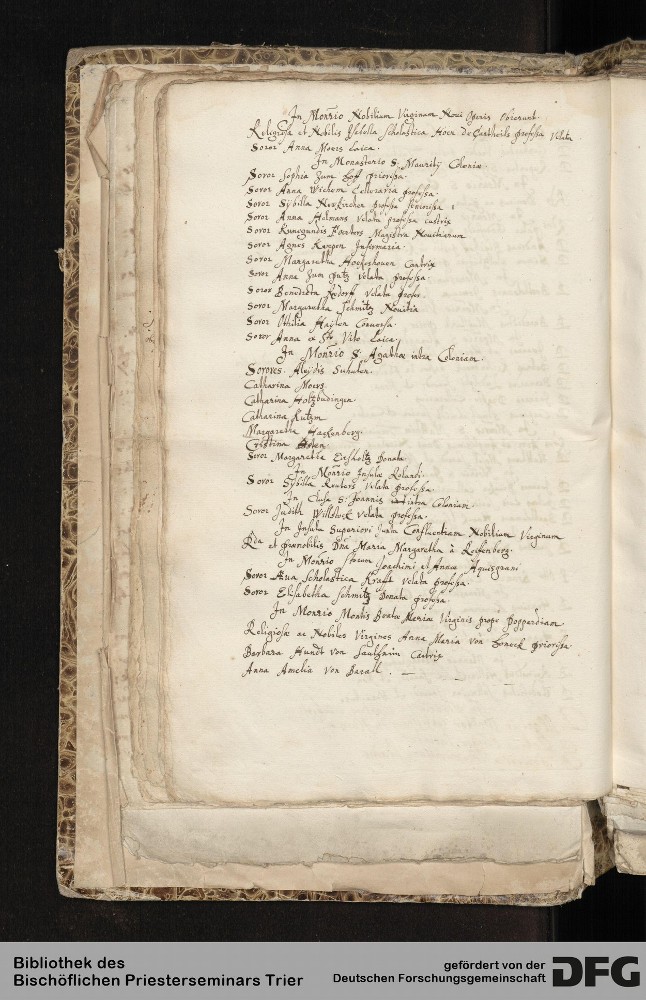 In Monrio Nobilium Virginum Novi Operis obierunt
Religiosa et Nobilis Isabella Scholastica Hoen de Cartheils professa velata
Soror Anna Moers Laica.
In Monasterio S: Mauritij Coloniæ.
Soror Sophia Zum priorissa.
Soror Anna Wichem Celleraria professa.
Soror Sybilla Neukirchen professa seniorissa
Soror Anna Helmans velata professa custrix
Soror Kunegundis Magistra Novitiarum
Soror Agnes Kempen Infirmaria
Soror Margaretha Hochshoven Cantrix
Soror Anna Zum putz velata professa.
Soror Benedicta velata profes.
Soror Margaretha Schmitz Novitia
Soror Othilia Conversa.
Soror Anna ex Sto Vito Laica.
In Monrio S: Agathæ intra Coloniam.
Sorores Aleydis
Catharina Moers.
Catharina Holtzbudingen.
Catharina
Margaretha Hackenberg.
Cristina
Soror Margaretha Donata
In Monrio Insulæ Rolandi.
Soror Sybilla Reuters velata professa.
In Clusa S: Joannis intra Coloniam.
Soror Judith velata professa.
In Insula Superiori juxta Confluentiam Nobilium Virginum
Rda et prænobilis Dna Maria Margaretha à Reiffenberg.
In Monrio Storum Joachimi et Annæ Aquisgrani
Soror Eva Scholastica Krafft velata professa.
Soror Elisabetha Schmitz Donata professa.
In Monrio Montis Beatæ Mariæ Virginis prope Poppardiam
Religiosæ ac Nobiles Virgines Anna Maria von Soneck priorissa
Barbara Hundt von Saulheim Cantrix
Anna Amelia von
Bibliothek des
Bischöflichen Priesterseminars Trier
gefördert von der
Deutschen Forschungsgemeinschaft
DFG